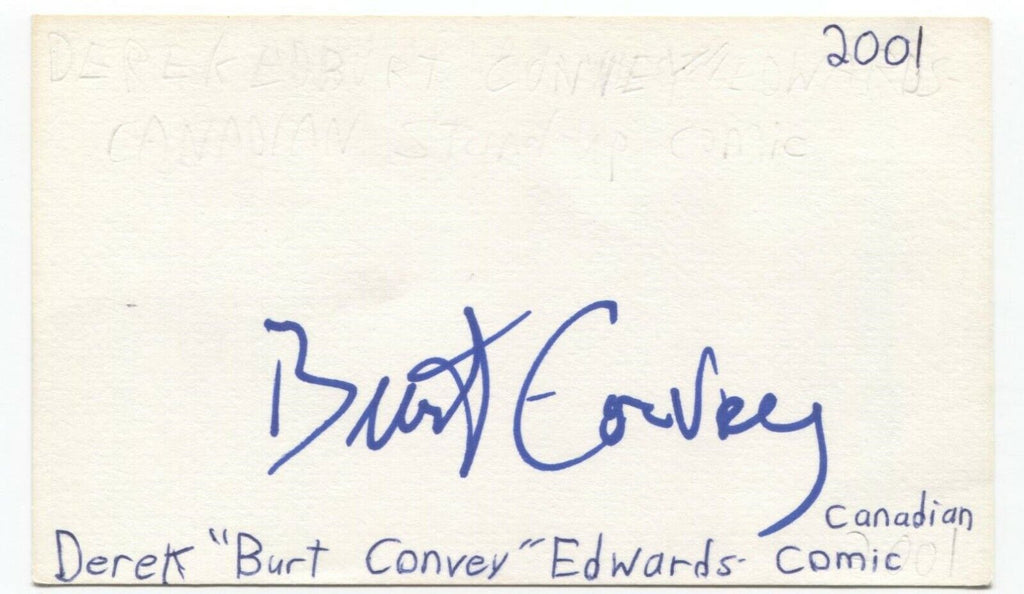 2001
DEREK "BURT CONVEY" EDWARDS-
CANADIAN Stand-up comic
Burt Convey
Canadian
Derek "Burt Convey" Edwards- Comic
2001